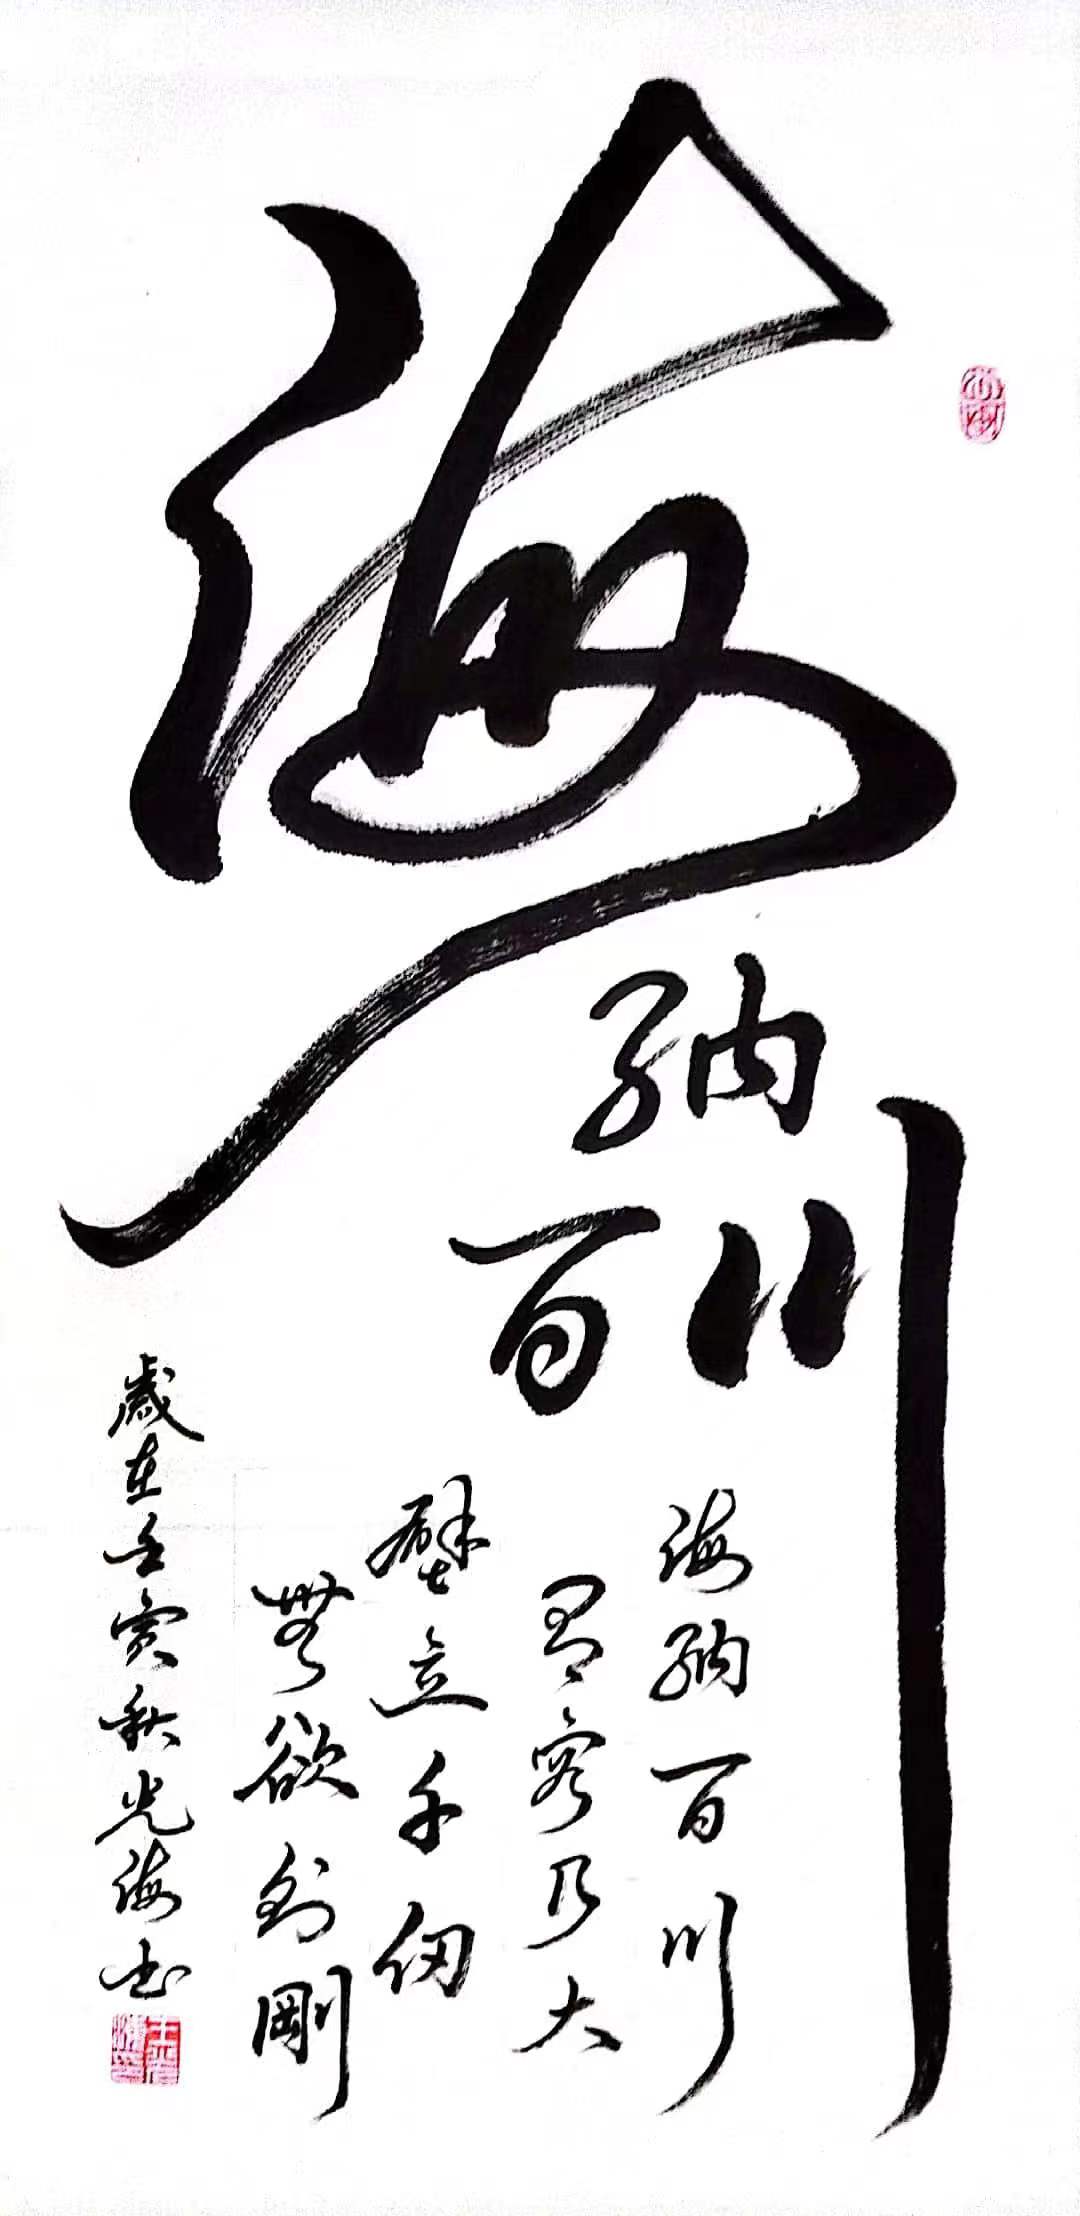 海
納
百川
海納百川
有容乃大
壁立千仞
無欲則剛
歲在壬寅秋光海书